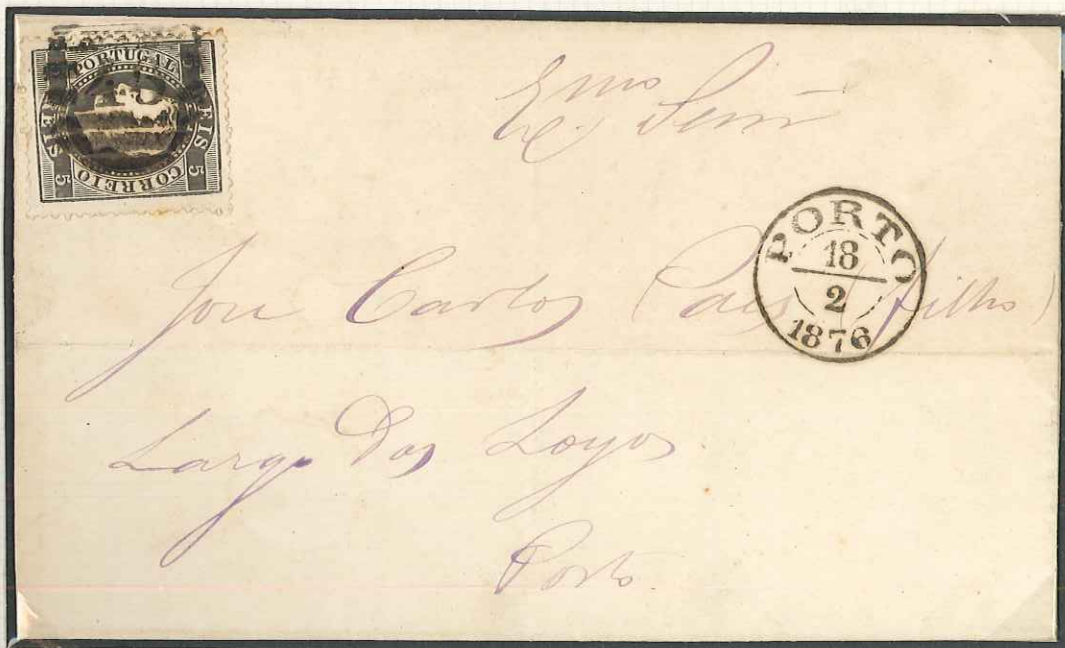 PORTUGAL
5 REIS 5
CORREIO
Exmo Senr
PORTO
18
2
1876
Jose Carlos Paes (filho)
Largo dos Loyos
Porto